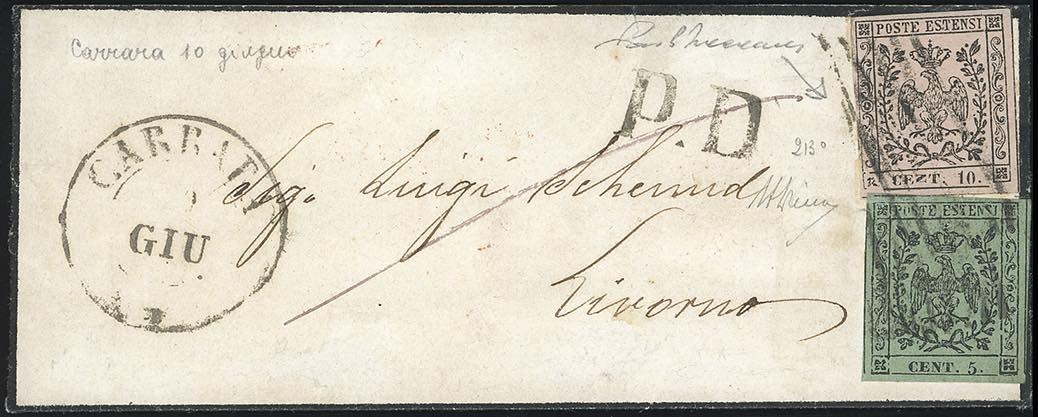 Carrara 10 giugno
POSTE ESTENSI
CENT. 10.
P.D
213°
CARRARA
GIU
Sigr. Luigi Schmid
Livorno
POSTE ESTENSI
CENT. 5.